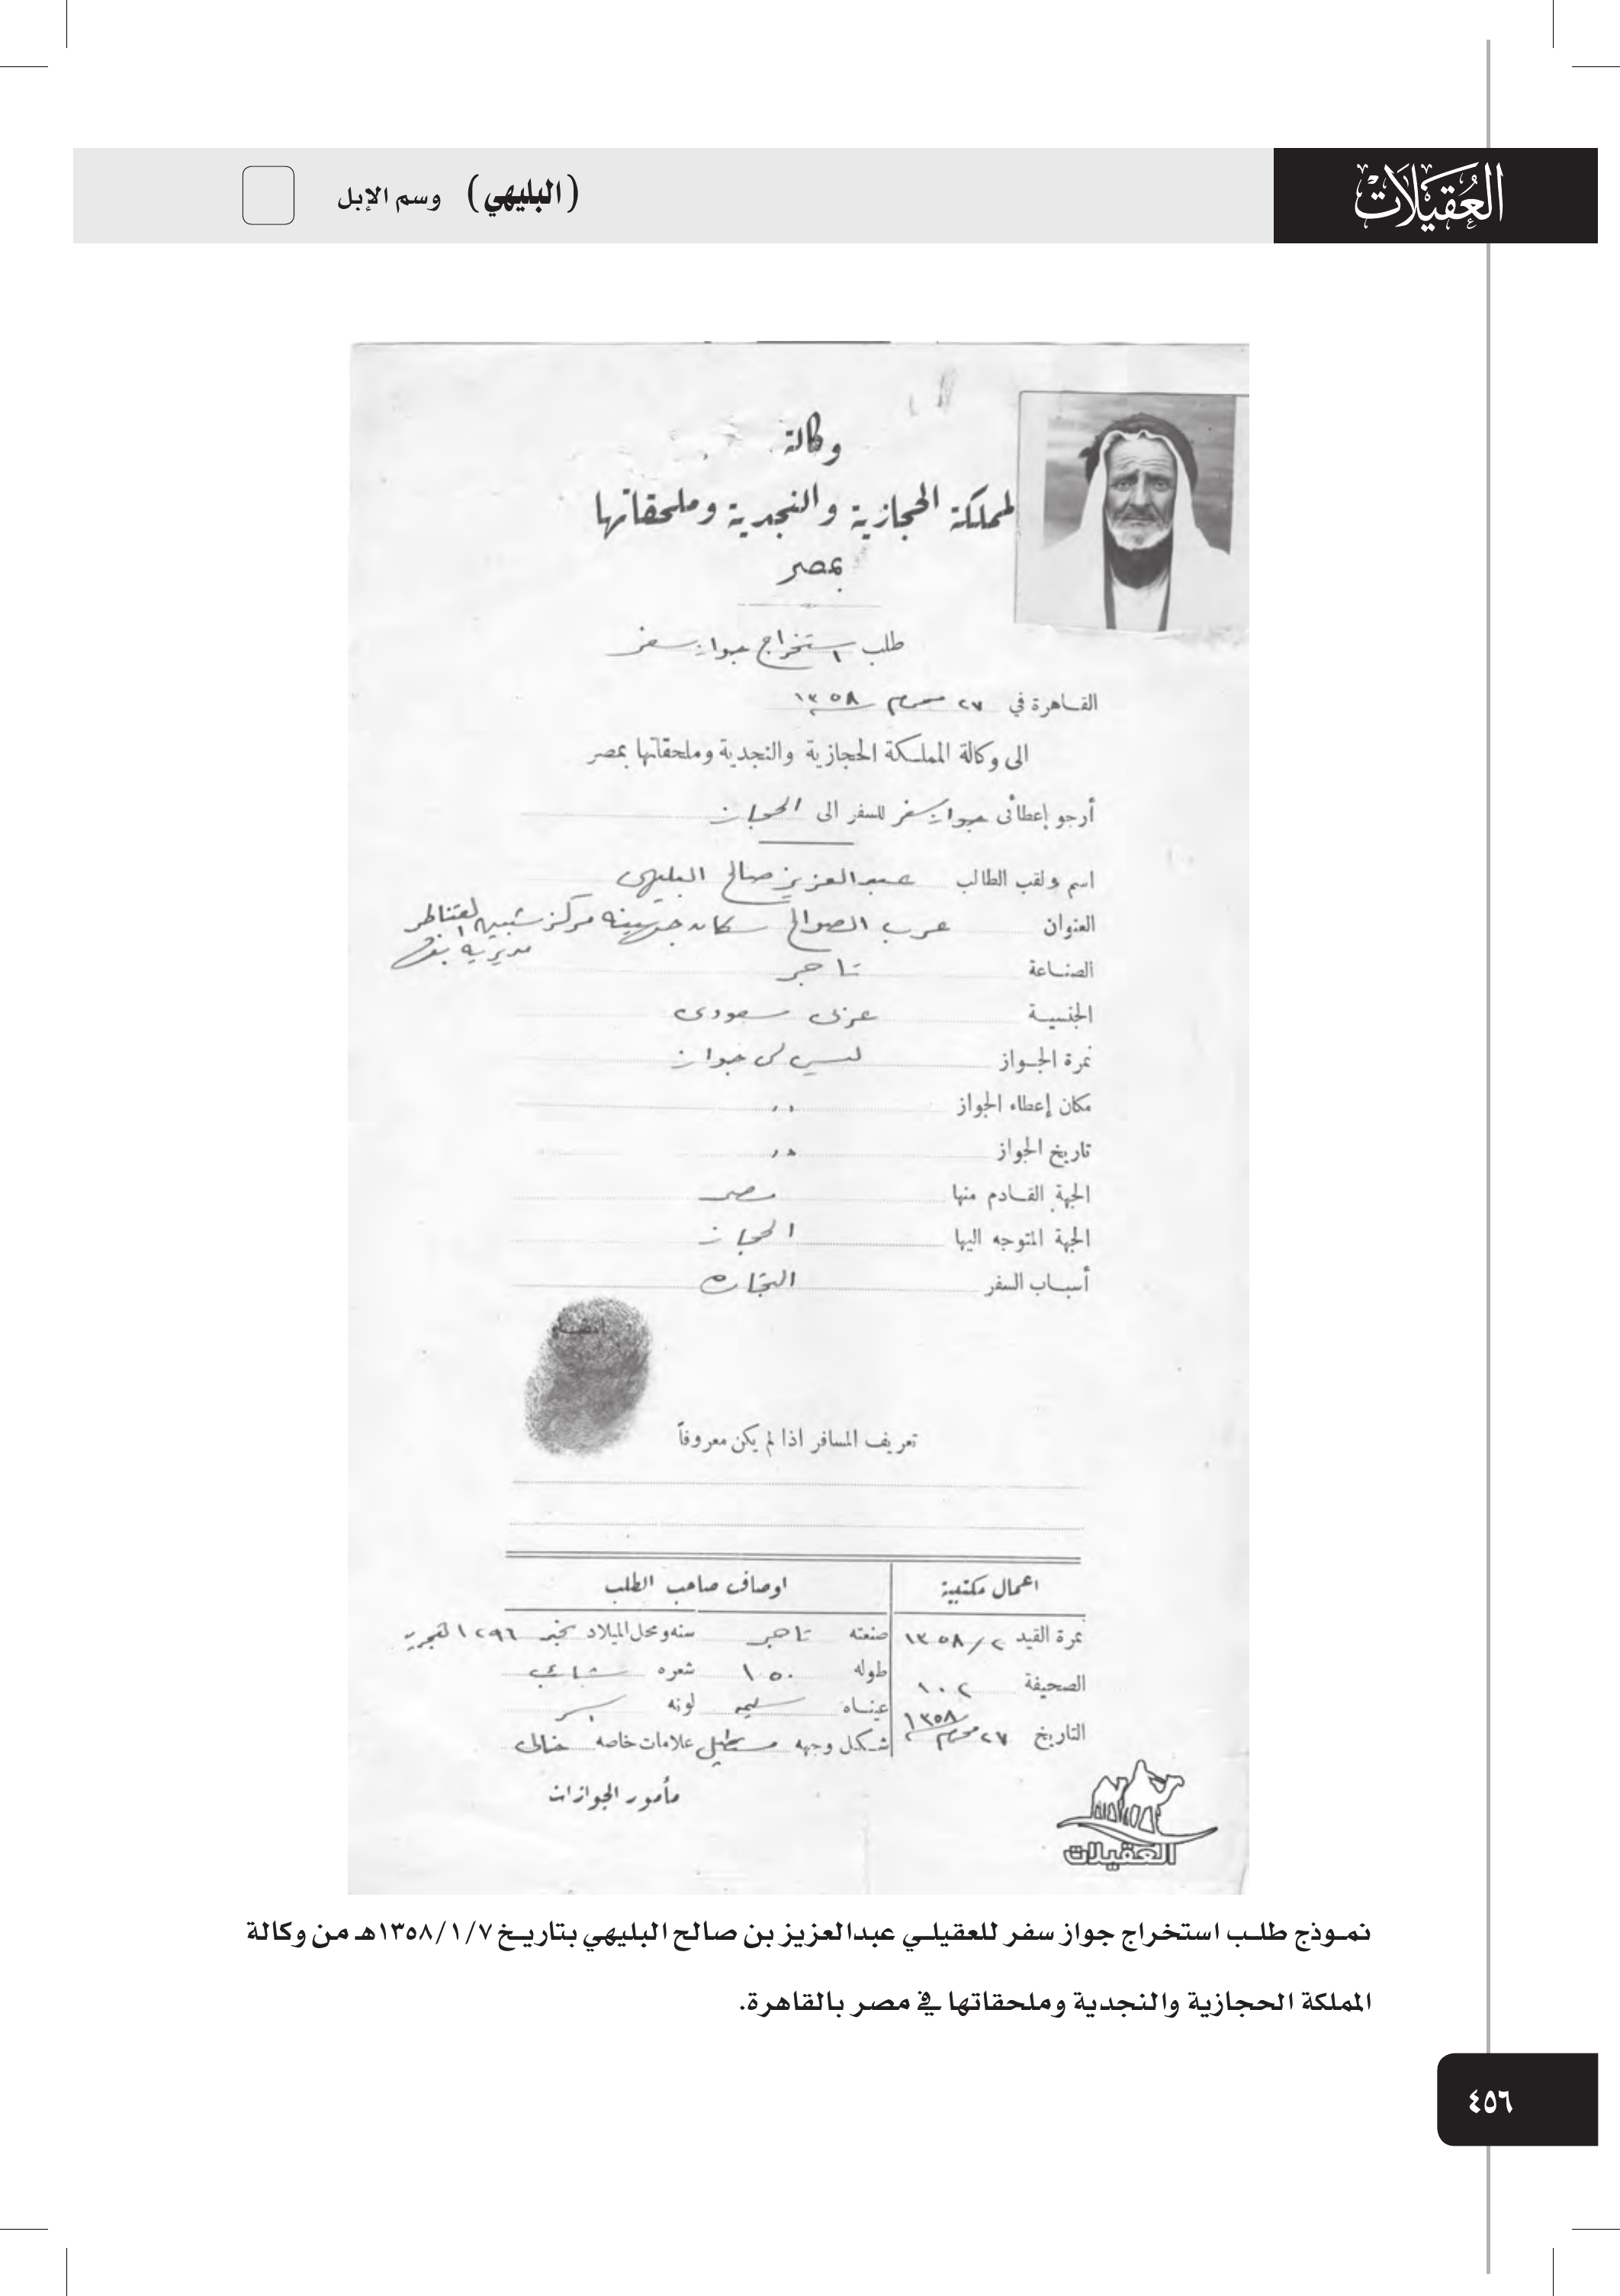 العُقَيلات
(البليهي) وسم الإبل
وكالة
لمملكة الحجازية والنجدية وملحقاتها
بمصر
طلب استخراج جواز سفر
القاهرة في ٢٧ محرم ١٣٥٨
الى وكالة المملكة الحجازية والنجدية وملحقاتها بمصر
أرجو إعطائى جواز سفر للسفر الى الحجاز
اسم ولقب الطالب عبدالعزيز صالح البليهى
العنوان عرب الصوالح سكان جهينه مركز شبين القناطر
مديرية
الصناعة تاجر
الجنسية عربى سعودى
نمرة الجواز ليس لى جواز
مكان إعطاء الجواز ,,
تاريخ الجواز ,,
الجهة القادم منها مصر
الجهة المتوجه اليها الحجاز
أسباب السفر التجاره
امضاء
تعريف المسافر اذا لم يكن معروفاً
اعمال مكتبية اوصاف صاحب الطلب
نمرة القيد ٢/١٣٥٨ صنعته تاجر سنه ومحل الميلاد ١٢٩٦
الصحيفة ١٠٢ طوله ١٥٠ شعره شائب
عيناه سليمه لونه
التاريخ ٢٧ محرم ١٣٥٨ شكل وجهه مستطيل علامات خاصه خالى
مأمور الجوازات
العقيلات
نموذج طلب استخراج جواز سفر للعقيلي عبدالعزيز بن صالح البليهي بتاريخ ١٣٥٨/١/٧هـ من وكالة
المملكة الحجازية والنجدية وملحقاتها في مصر بالقاهرة.
٤٥٦